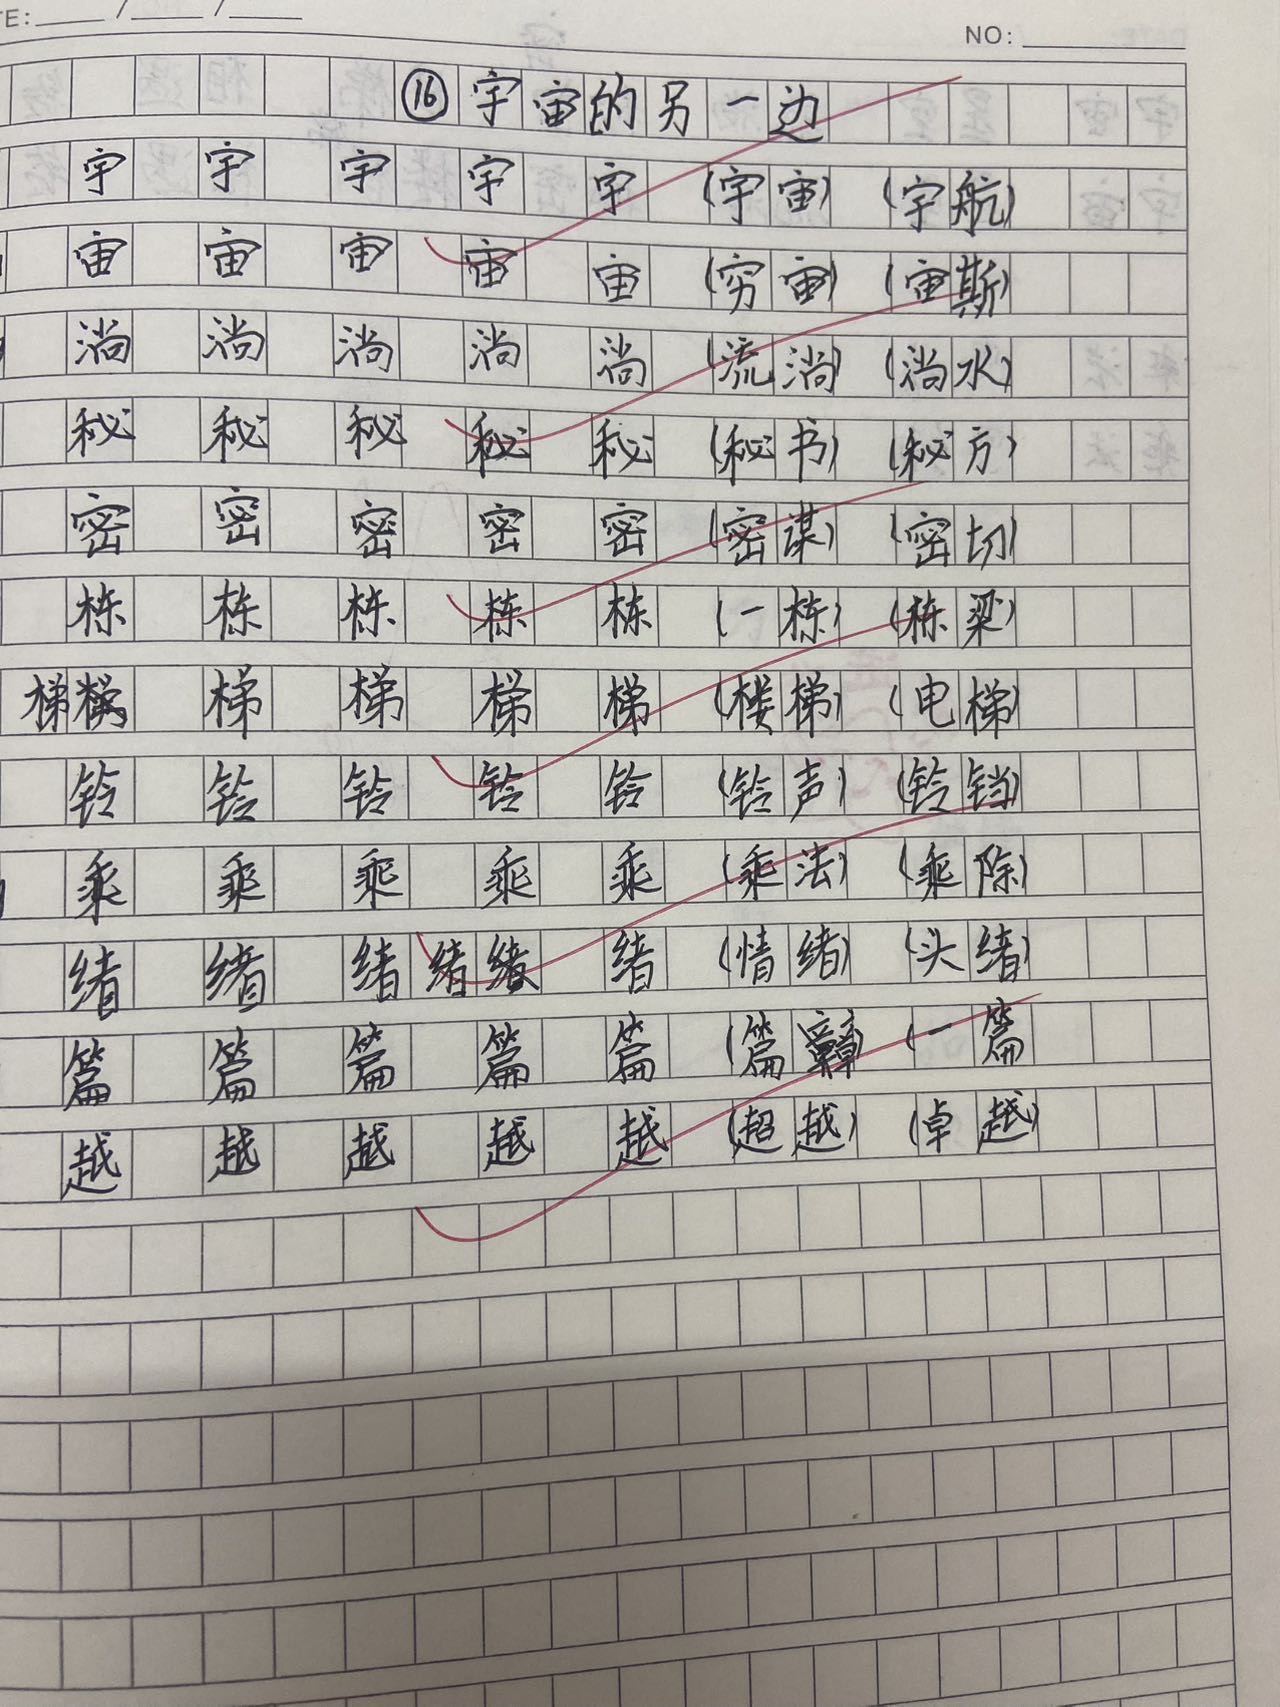 TE: / /
NO:
⑯宇宙的另一边
宇 宇 宇 宇 宇 (宇宙) (宇航)
宙 宙 宙 宙 宙 (穷宙) (宙斯)
淌 淌 淌 淌 淌 (流淌) (淌水)
秘 秘 秘 秘 秘 (秘书) (秘方)
密 密 密 密 密 (密谋) (密切)
栋 栋 栋 栋 栋 (一栋) (栋梁)
梯 梯 梯 梯 梯 (楼梯) (电梯)
铃 铃 铃 铃 铃 (铃声) (铃铛)
乘 乘 乘 乘 乘 (乘法) (乘除)
绪 绪 绪 绪 绪 (情绪) (头绪)
篇 篇 篇 篇 篇 (篇章) (一篇)
越 越 越 越 越 (超越) (卓越)